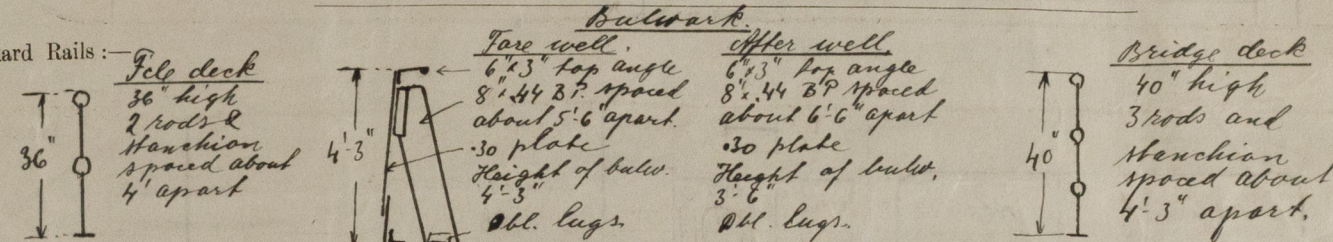 Bulwark.
ard Rails :—
Fcle deck
36" high
2 rods &
stanchion
spaced about
4' apart
36"
4'-3"
Fore well.
6"x3" top angle
8"x.44 B.P. spaced
about 5'-6" apart.
.30 plate
Height of bulw.
4'-3"
Dbl. lugs.
After well.
6"x3" top angle
8"x.44 B.P. spaced
about 6'-6" apart
.30 plate
Height of bulw.
3'-6"
Dbl. lugs.
40"
Bridge deck
40" high
3 rods and
stanchion
spaced about
4'-3" apart.